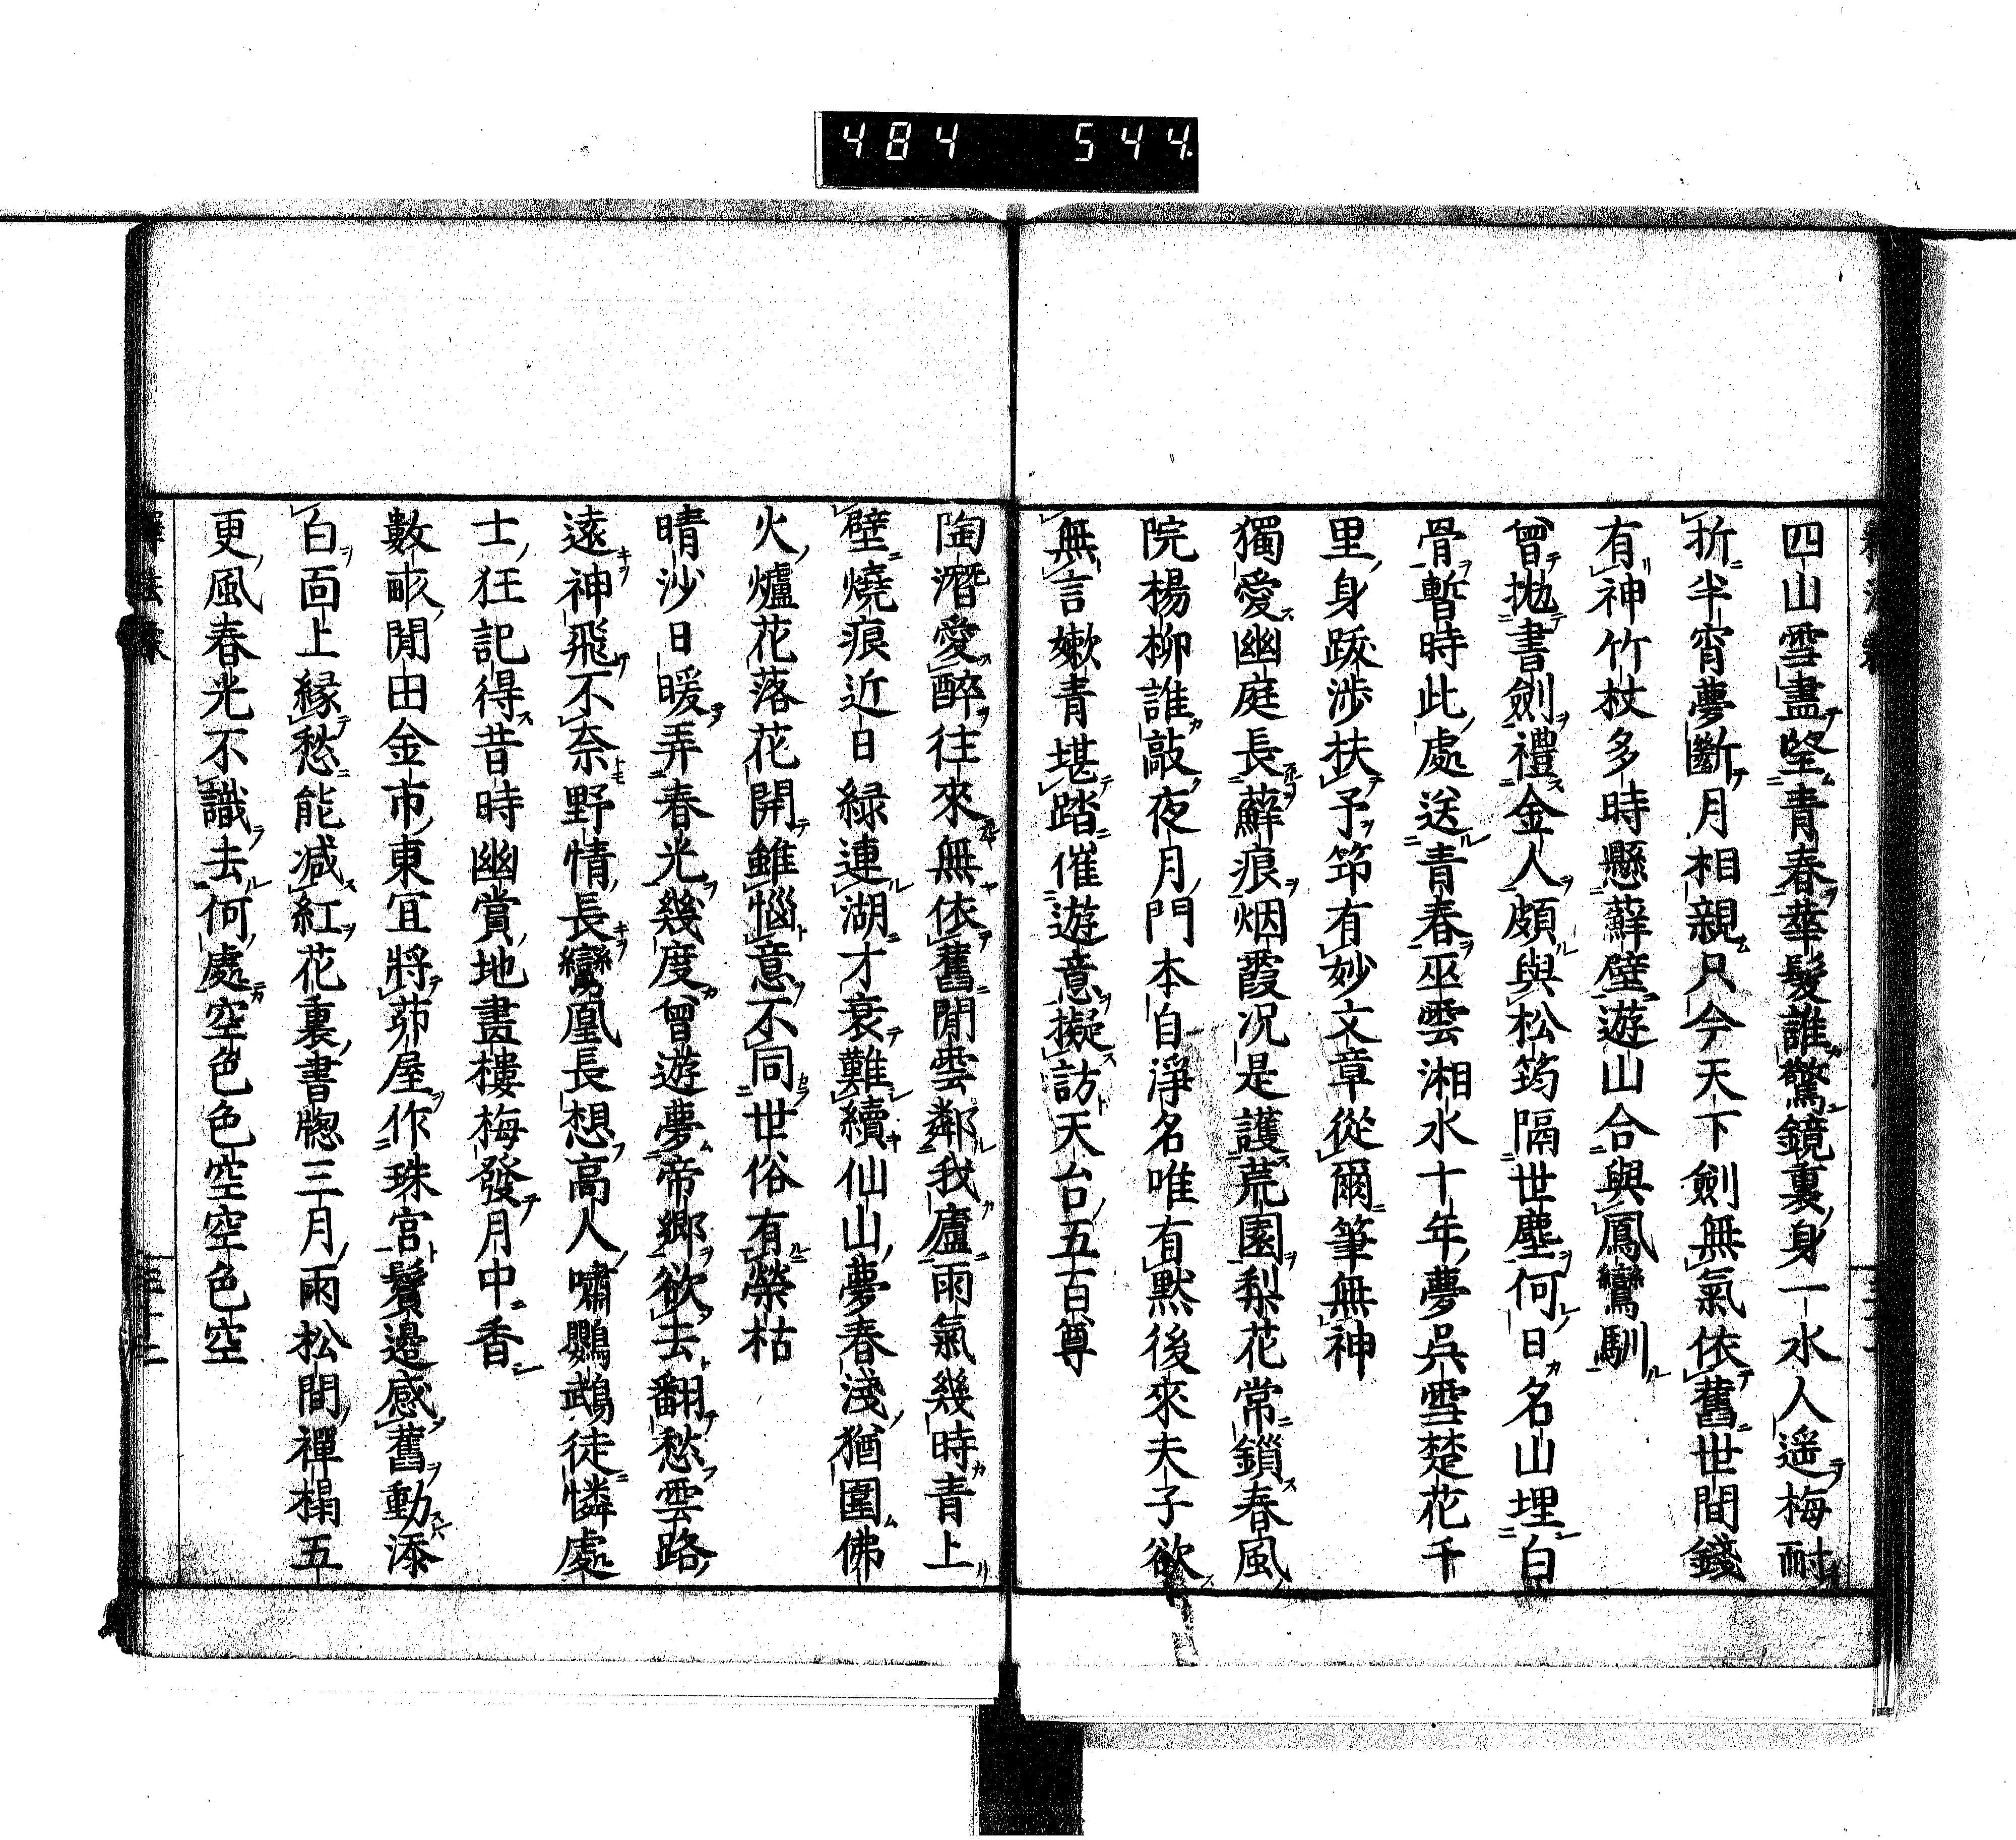 484 544.
四山雪盡望青春華髮誰驚鏡裏身一水人遥梅耐
折半宵夢斷月相親只今天下劍無氣依舊世間錢
有神竹杖多時懸蘚壁遊山合與鳳鸞馴
曾抛書劍禮金人頗與松筠隔世塵何日名山埋白
骨暫時此處送青春巫雲湘水十年夢吳雪楚花千
里身跋涉扶予笻有妙文章從爾筆無神
獨愛幽庭長蘚痕烟霞况是護荒園梨花常鎖春風
院楊柳誰敲夜月門本自淨名唯有默後來夫子欲
無言嫩青堪踏催遊意擬訪天台五百尊
陶潛愛醉往來無依舊閒雲鄰我廬雨氣幾時青上
壁燒痕近日緑連湖才衰難續仙山夢春淺猶圍佛
火爐花落花開雖惱意不同世俗有榮枯
晴沙日暖弄春光幾度曾遊夢帝郷欲去翻愁雲路
遠神飛不奈野情長鸞凰長想高人嘯鸚鵡徒憐處
士狂記得昔時幽賞地畫樓梅發月中香
數畝閒田金市東宜將茆屋作珠宮鬢邊感舊動添
白面上緣愁能减紅花裏書牕三月雨松間禪榻五
更風春光不識去何處空色色空空色空